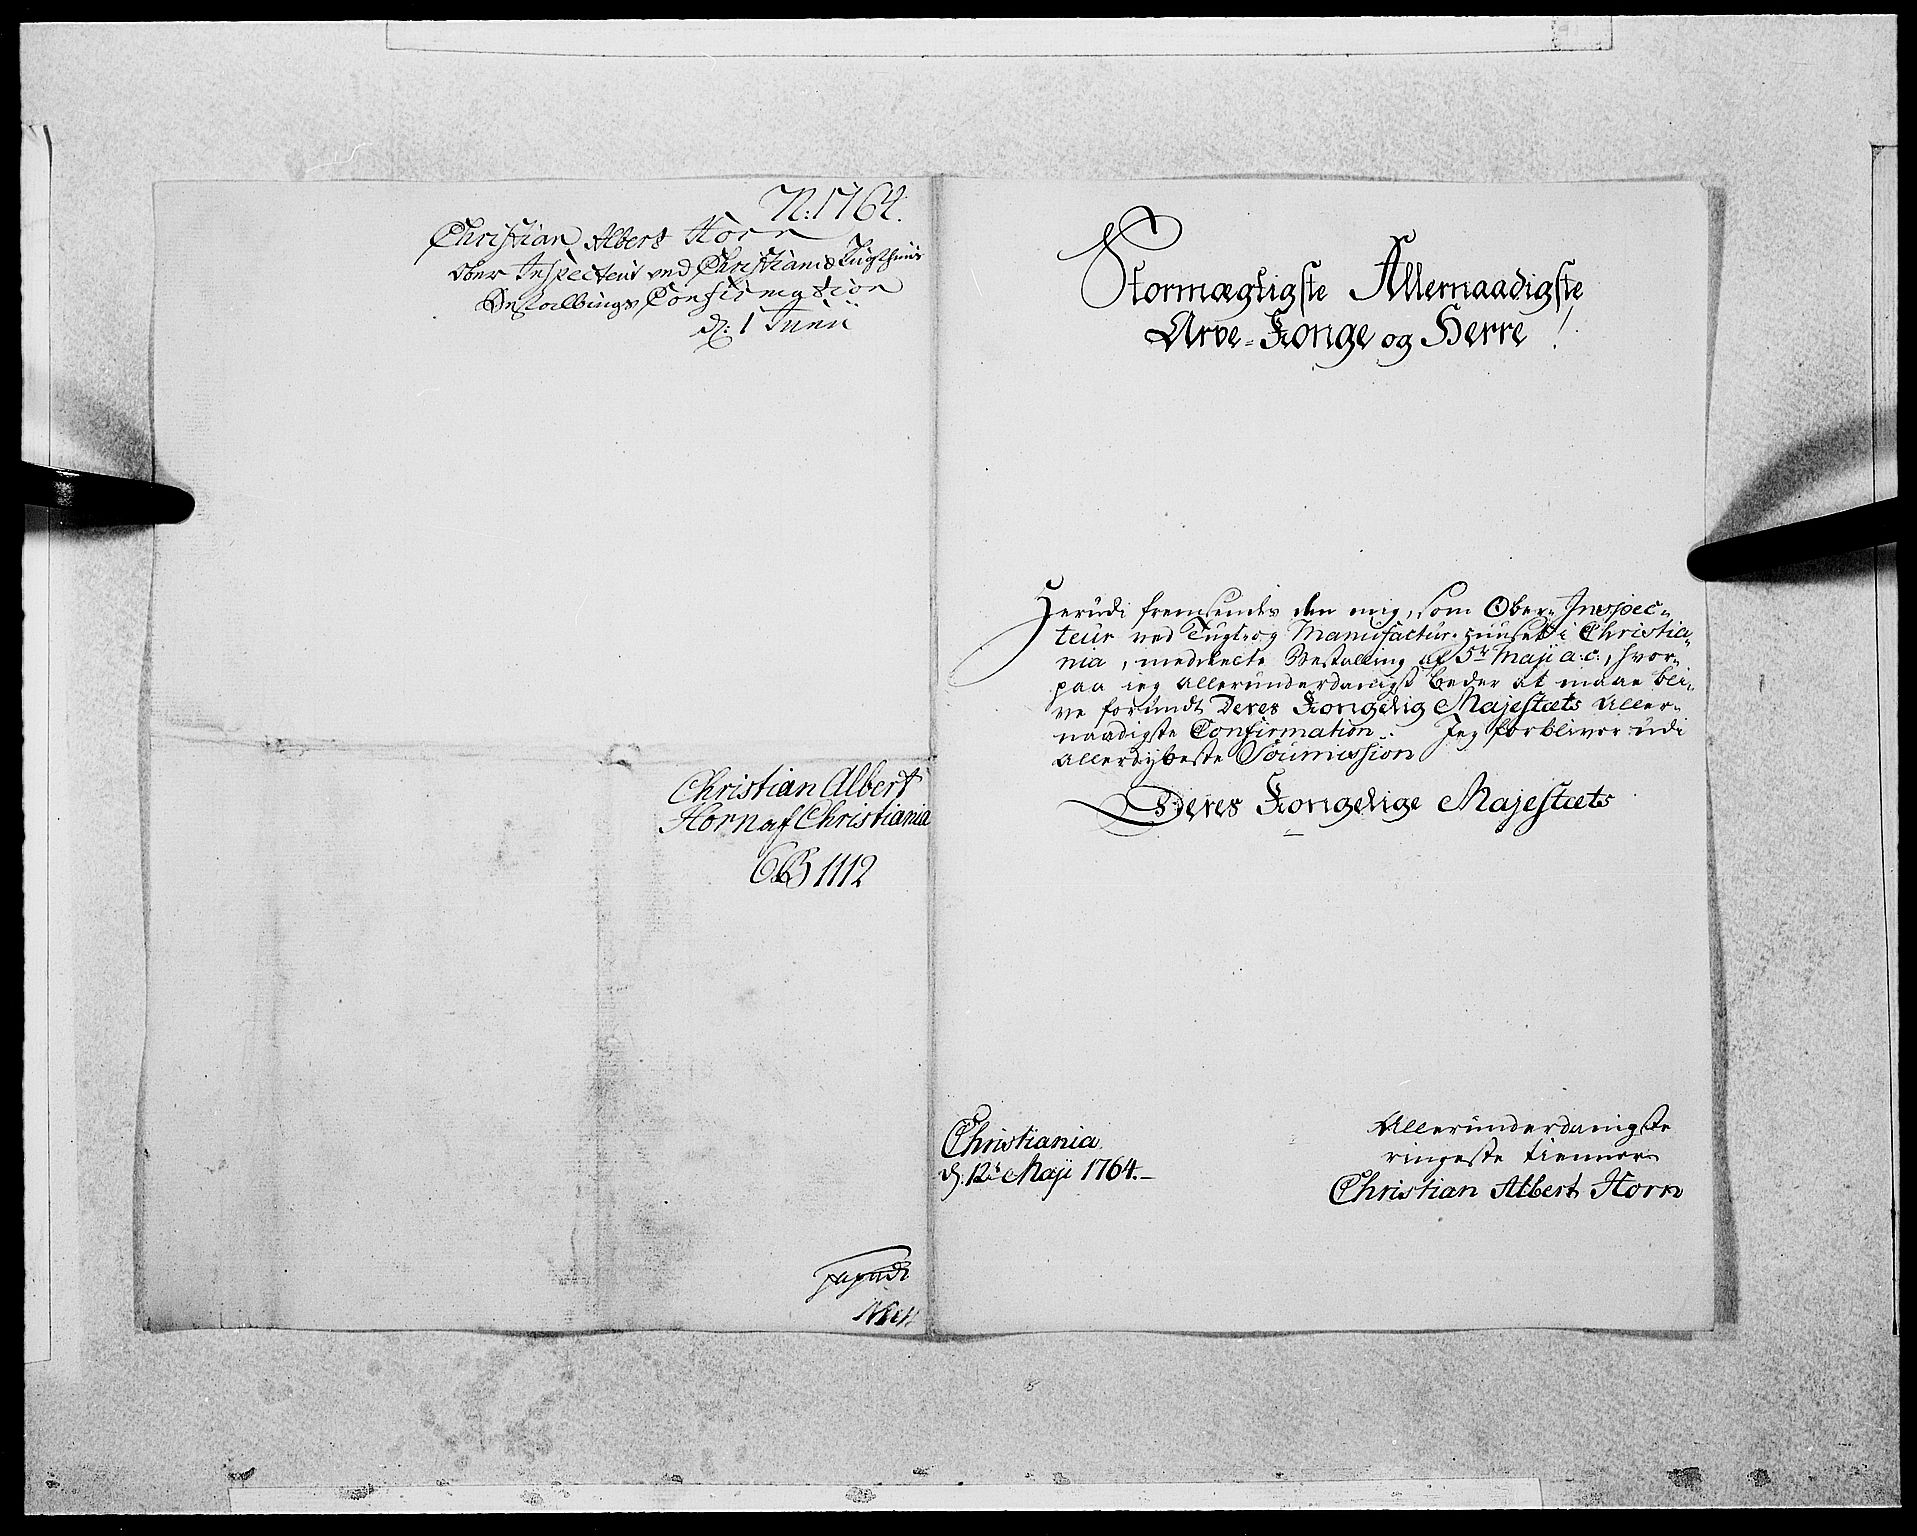 N: 1764.
Christian Albert Horn
Ober Inspecteur ved Christiania Tugthuus
Bestallings Confirmation
d: 1 Junii
Christian Albert
Horn af Christiania
1112
Stormægtigste Allernaadigste
Arve-Konge og Herre!
Herudi fremsendes den mig, som Ober-Inspec-
teur ved Tugt- og Manufactur-Huuset i Christia-
nia, meddeelte Bestalling af 5te Maji a: c:, hvor-
paa jeg allerunderdanigst beder at maae bli-
ve forundt Deres Kongelig Majestæts Aller-
naadigste Confirmation. Jeg forbliver udi
allerdybeste Soumission
Deres Kongelige Majestæts
Christiania
d: 12te Maji 1764.-
Allerunderdanigste
ringeste tienner
Christian Albert Horn